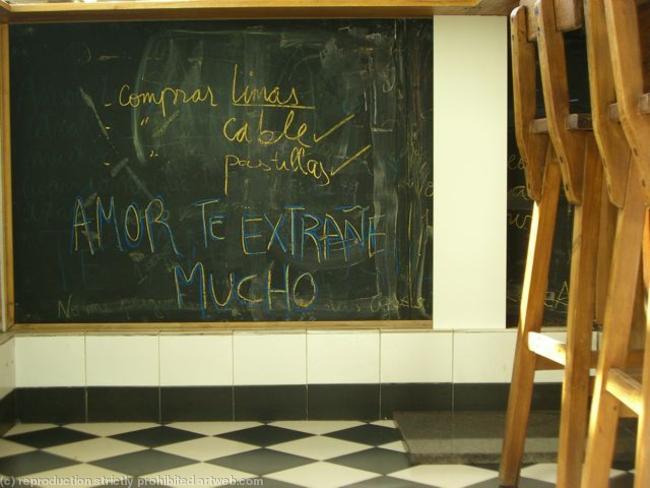 - comprar limas
- " cable ✓
- " pastillas ✓
AMOR TE EXTRAÑE
MUCHO
(c) reproduction strictly prohibited artweb.com